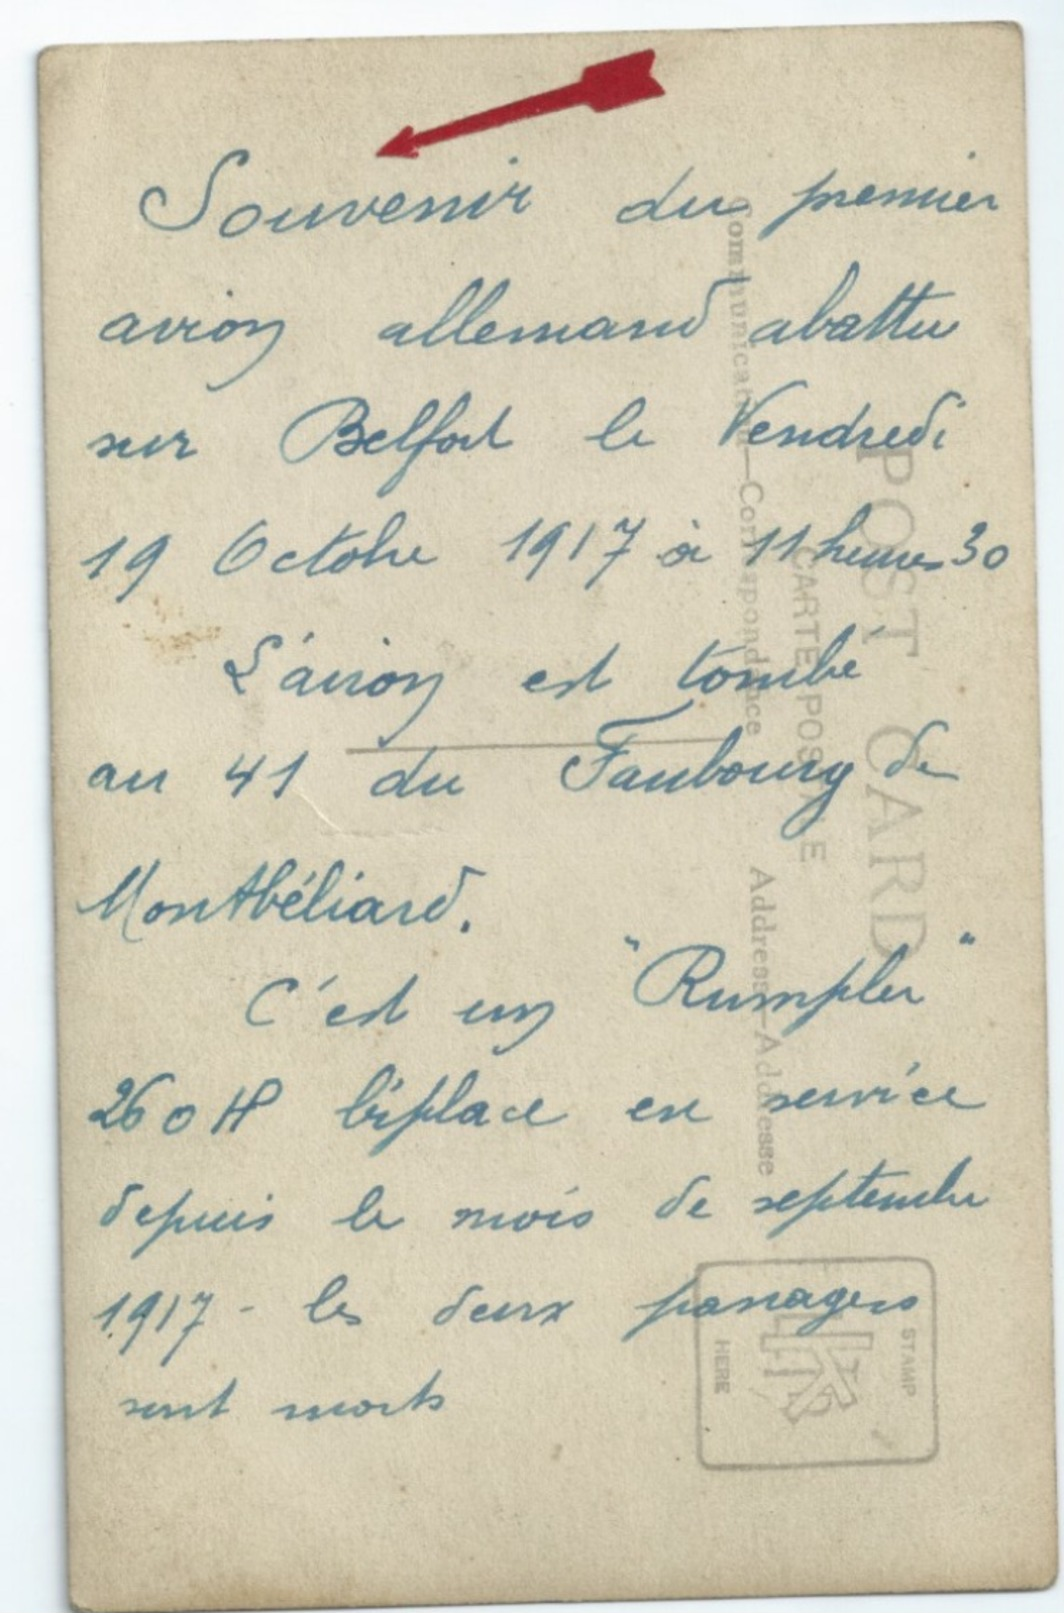 Souvenir du premier
avion allemand abattu
sur Belfort le Vendredi
19 Octobre 1917 à 11 heures 30
L'avion est tombé
au 41 du Faubourg de
Montbéliard.
C'est un "Rumpler"
260 HP biplace en service
depuis le mois de septembre
1917 - les deux passagers
sont morts
POST CARD
CARTE POSTALE
Communication—Correspondance
Address—Addresse
STAMP
HERE